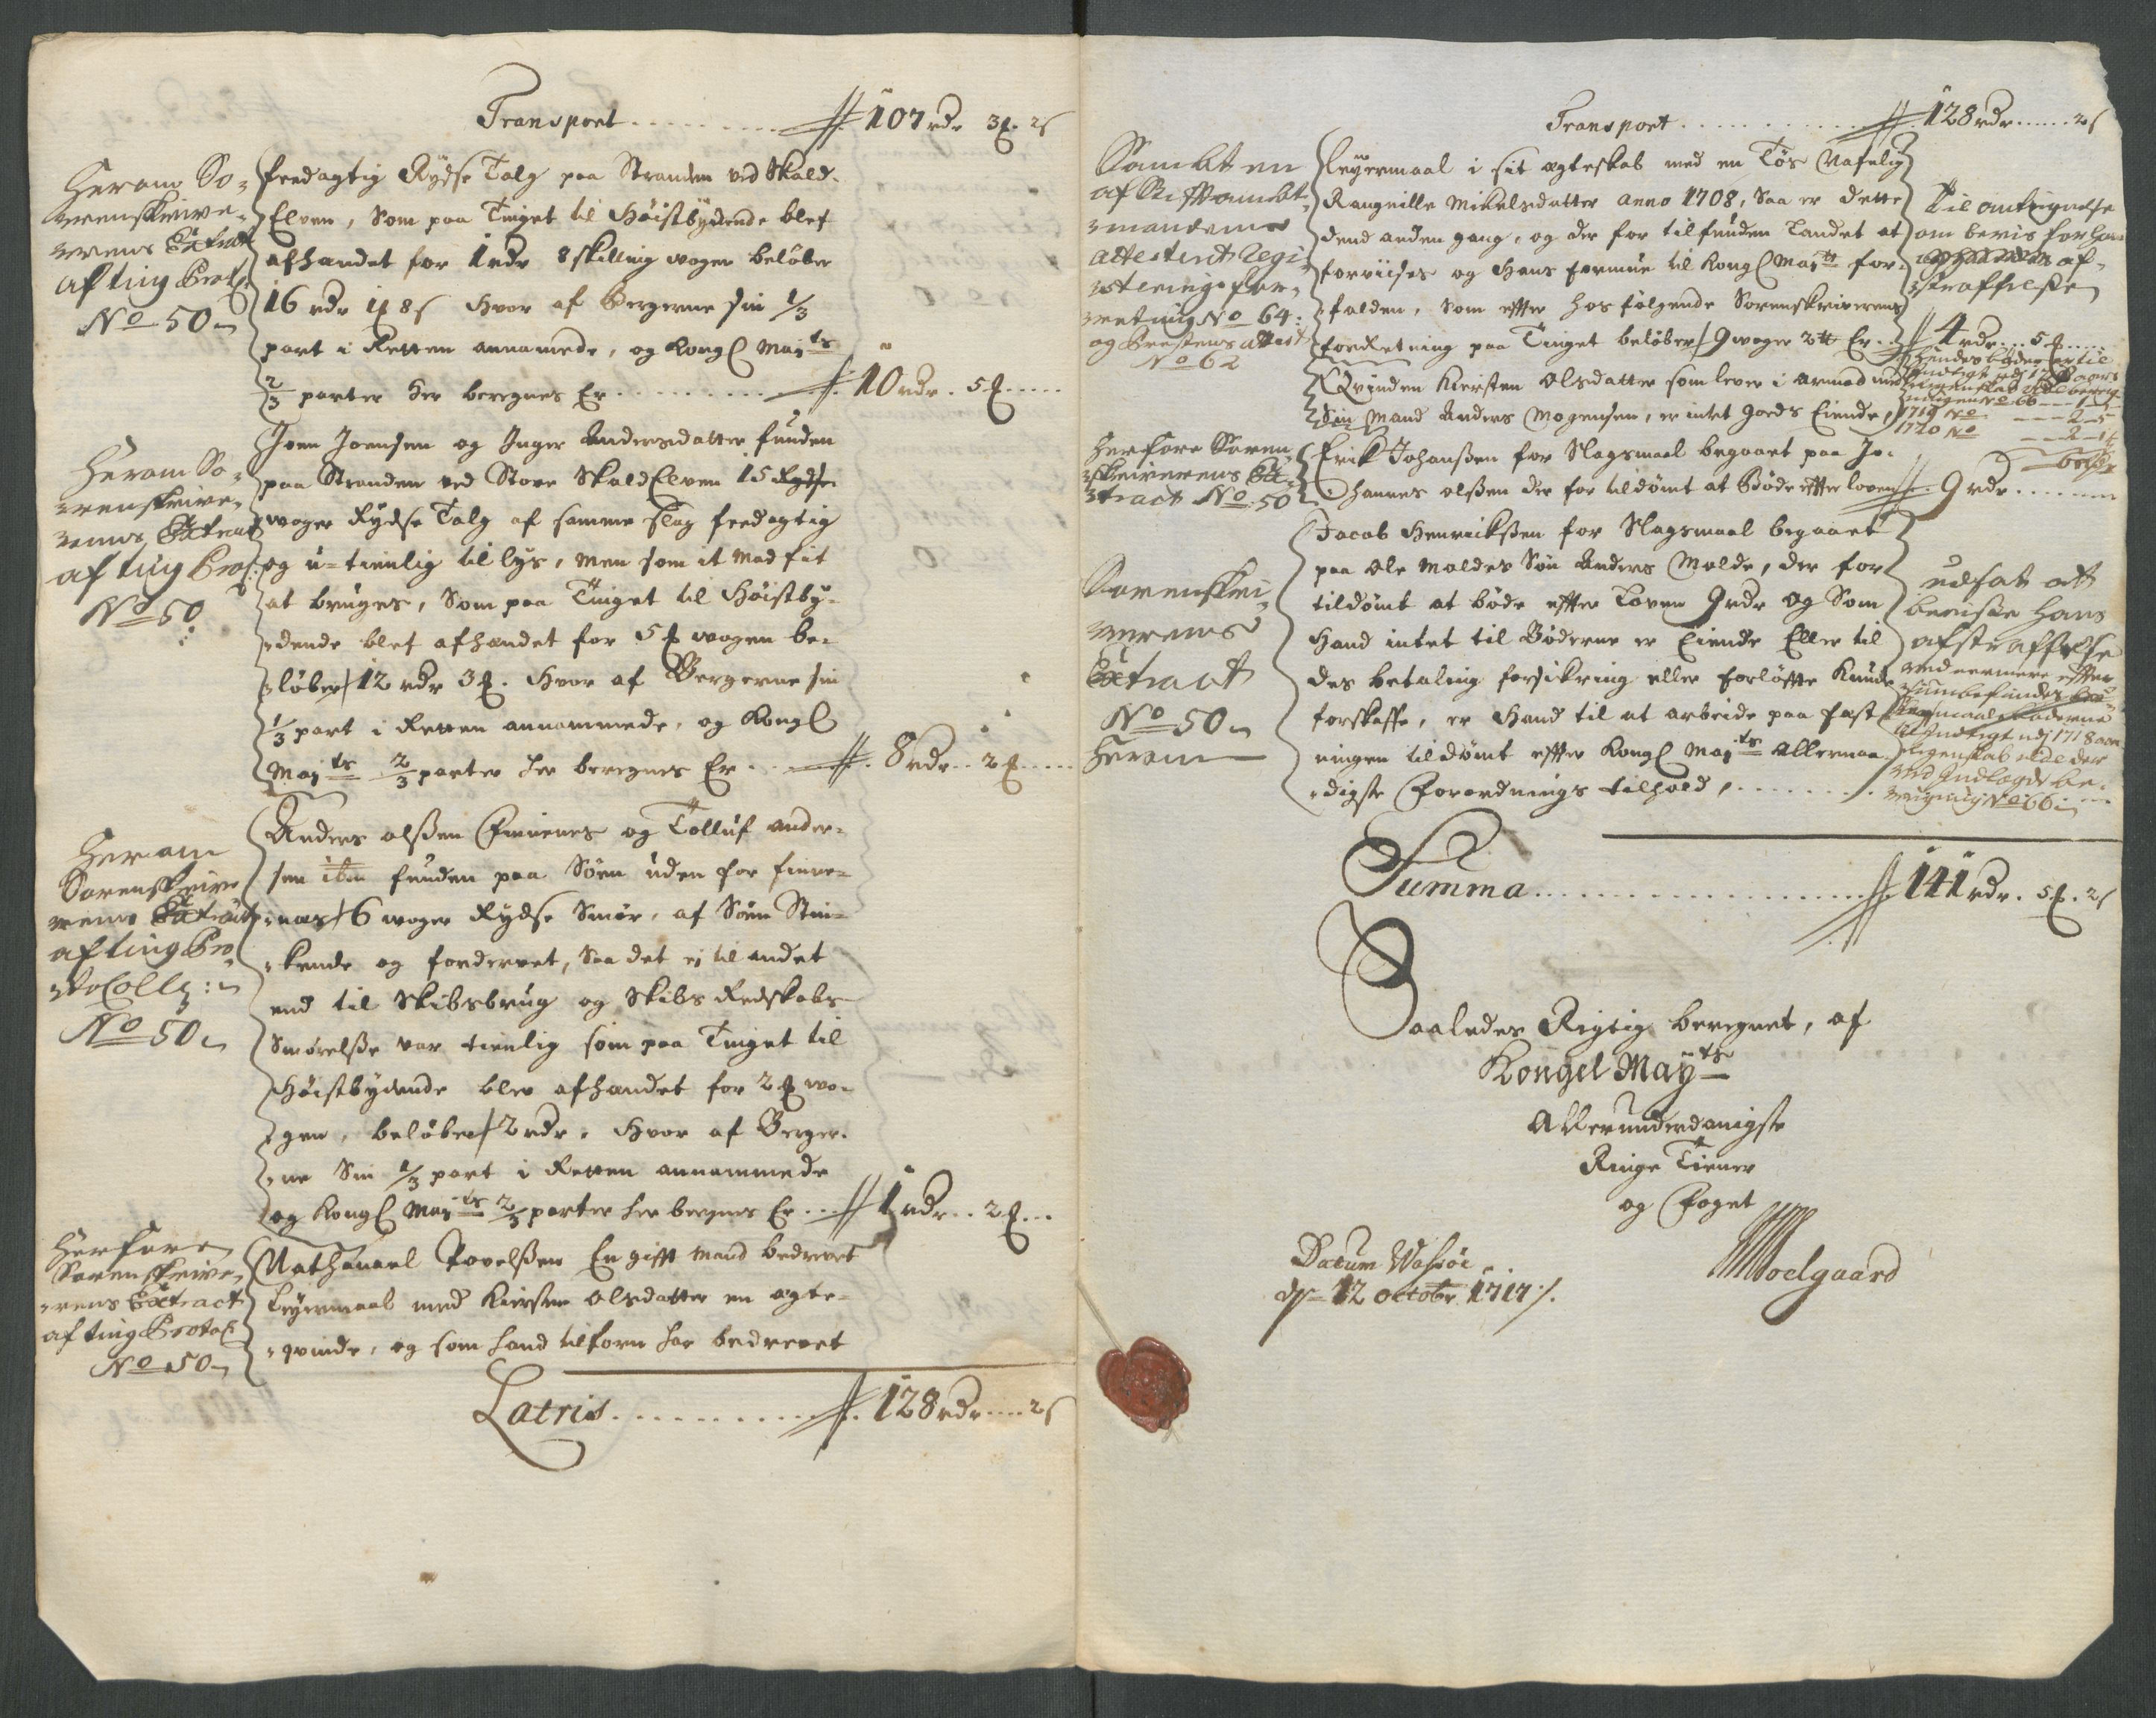 Transport ........ // 107 rdr 3 ℔. 2 s
Herom So-
renskrive-
rens Extract
af ting Prot:
No 50
feedagtig Rydse Talg paa Stranden ved Skald-
Elven, Som paa Tinget til Høistbydende blef
afhandet for 1 rdr 8 skilling wogen beløber
16 rdr 1 ℔ 8 s Hvor af Bergerne sin 1/3
part i Retten annamede, og Kongl Maj ts
2/3 parter her beregnes Er ........ // 10 rdr . 5 ℔ .....
Herom So-
renskrive-
rens Extract
af ting Prot:
No 50
Joen Joensen og Inger Andersdatter funden
paa Stranden ved Store Skald Elven 15 Rydse
woger Rydse Talg af samme slag feedagtig
og u-tienlig til lys, men som it Mad fit
at bruges, Som paa Tinget til Høistby-
dende blef afhandet for 5 ℔ wogen be-
løber / 12 rdr 3 ℔. Hvor af Bergerne sin
1/3 part i Retten annammede, og Kongl
Maj ts 2/3 parter her beregnes Er ... // 8 rdr .. 2 ℔ .....
Herom
Sorenskrive
rens Extract
af ting Pro
tocoll:
No 50
Anders olßen Finnenes og Tolluf ander-
sen ibm funden paa Søen uden for finne-
næs / 6 woger Rydse Smør, af Søen Stin-
kende og fordervet, Saa det ej til andet
end til Skibsbrug og Skibs Redskabs
Smørelße var tienlig som paa Tinget til
Høistbydende blev afhandet for 2 ℔ wo-
gen, beløber / 2 rdr, Hvor af Berger-
ne Sin 1/3 part i Retten annammede
og Kongl Maj ts 2/3 parter her beregnes Er ... // 1 rdr .. 2 ℔ ...
Herfore
Sorenskrive-
rens Extract
af ting Protoc
No 50
Nathanael Povelßen En gifft Mand bedrevet
Leyermaal med Kiersten Olsdatter en egte-
qvinde, og som hand tilforn har bedrevet
Latris ......... // 128 rdr .... 2 s
Transport ............ // 128 rdr ...... 2 s
Sambt en
af Stifftambt-
mandens
attesterit Regi-
sterings for-
retning No 64:
og Prestens attest
No 62
Leyermaal i sit egteskab med en Tøs Nafnlig
Rangnille Mikelsdatter anno 1708, Saa er dette
dend anden gang, og der for tilfunden Landet at
forviises og Hans formue til Kongl Maj ts for-
falden, som effter hos følgende Sorenskriverens
forretning paa Tinget beløber / 9 woger 2 ℔ Er. // 4 rdr ... 5 ℔ .....
Til antegnelse
om bevis for han-
af-
straffelse
Qvinden Kiersten Olsdatter som lever i armod med
Sin Mand Anders Mogensen, er intet goeds Eiende,
1719 No - - - 2-5
1720 No - - - 2-
Herfore Soren-
skriverens Ex-
tract No 50
Erik Johanßen for Slagsmaal begaaet paa Jo-
hannes olßen der for tildømt at Bøde effter loven // 9 rdr .......
Sorenskri-
verens
Extract
No 50
Herom
Jacob Henrickßen for Slagsmaal begaaet
paa Ole Moldes Søn Anders Molde, der for
tildømt at bøde effter Loven 9 rdr og Som
Hand intet til Bøderne er Eiende Eller til
des betaling forsikring eller forløffte Kunde
forskaffe, er Hand til at arbeide paa fæst-
ningen tildømt effter Kongl Maj ts Allernaa-
digste Forordnings tilhold, ........
udsat at
beviise hans
afstraffelse
ved nermere effter
Slagsmaals bøderne
er Indtegt udj 1718 aars
Regenskab
ved Indlagde be-
regning No 66
Summa .................. // 141 rdr . 5 ℔ . 2 s
Saaledes Rigtig beregnet, af
Kongel May ts
Allerunderdanigste
Ringe Tiener
og Foget
Datum Wasøe
d 12 octobr 1717 ./.
Woelgaard